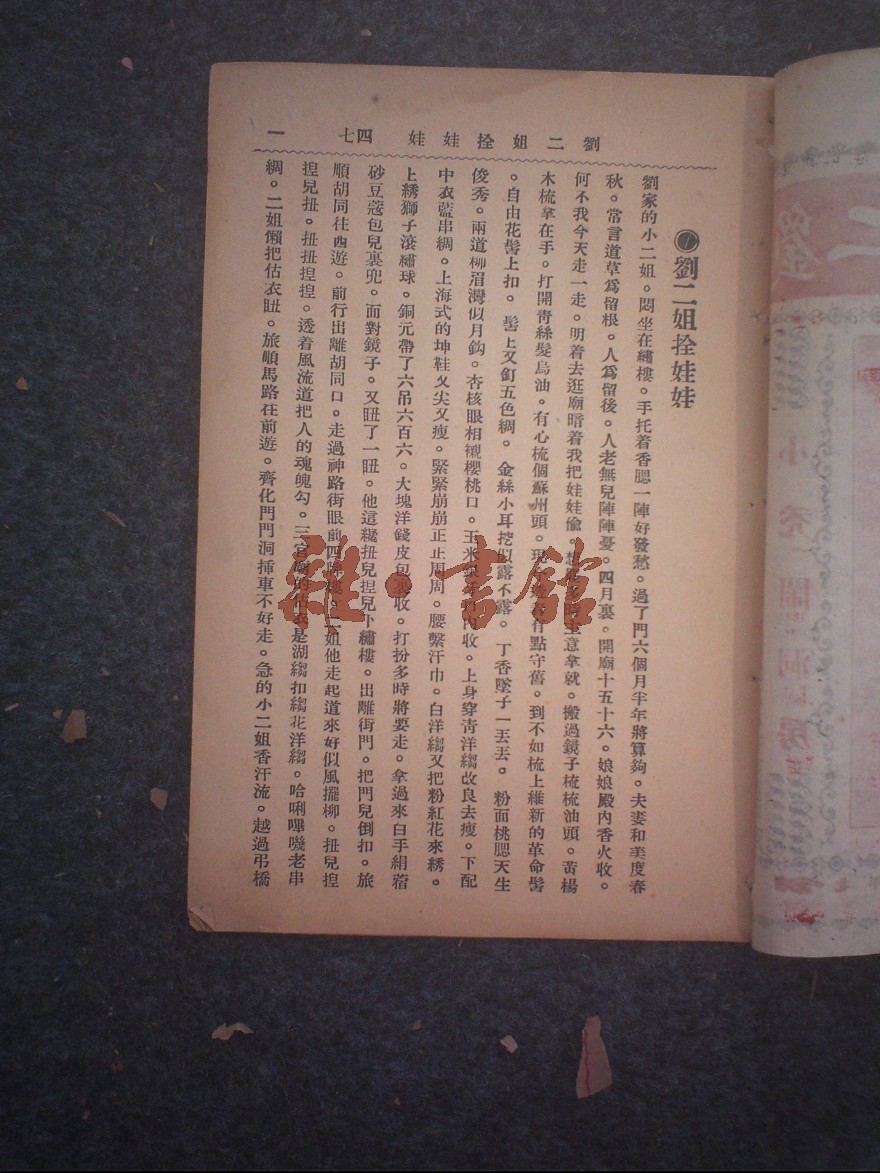 劉二姐拴娃娃 四七 一
劉二姐拴娃娃
劉家的小二姐。悶坐在繡樓。手托着香腮一陣好發愁。過了門六個月半年將算夠。夫妻和美度春
秋。常言道草爲留根。人爲留後。人老無兒陣陣憂。四月裏。開廟十五十六。娘娘殿內香火收。
何不我今天走一走。明着去逛廟暗着我把娃娃偸。想 意拿就。搬過鏡子梳梳油頭。黃楊
木梳拿在手。打開靑絲髮烏油。有心梳個蘇州頭。現 有點守舊。到不如梳上維新的革命髻
。自由花髻上扣。髻上又釘五色綢。金絲小耳挖似露不露。丁香墜子一丟丟。粉面桃腮天生
俊秀。兩道柳眉灣似月鈎。杏核眼相襯櫻桃口。玉米銀牙 內收。上身穿靑洋縐改良去瘦。下配
中衣藍串綢。上海式的坤鞋又尖又瘦。緊緊崩崩正正周周。腰繫汗巾。白洋縐又把粉紅花來綉。
上綉獅子滾繡球。銅元帶了六吊六百六。大塊洋錢皮包裹收。打扮多時將要走。拿過來白手絹荳
砂豆蔻包兒裏兜。面對鏡子。又瞧了一瞧。他這纔扭兒捏兒下繡樓。出離街門。把門兒倒扣。旅
順胡同往西遊。前行出離胡同口。走過神路街眼前四牌樓。二姐他走起道來好似風擺柳。扭兒捏
捏兒扭。扭扭捏捏。透着風流道把人的魂魄勾。三官廟的估衣是湖縐扣縐花洋縐。哈唎嗶嘰老串
綢。二姐懶把估衣瞅。旅順馬路在前遊。齊化門門洞揷車不好走。急的小二姐香汗流。越過弔橋
雜·書館